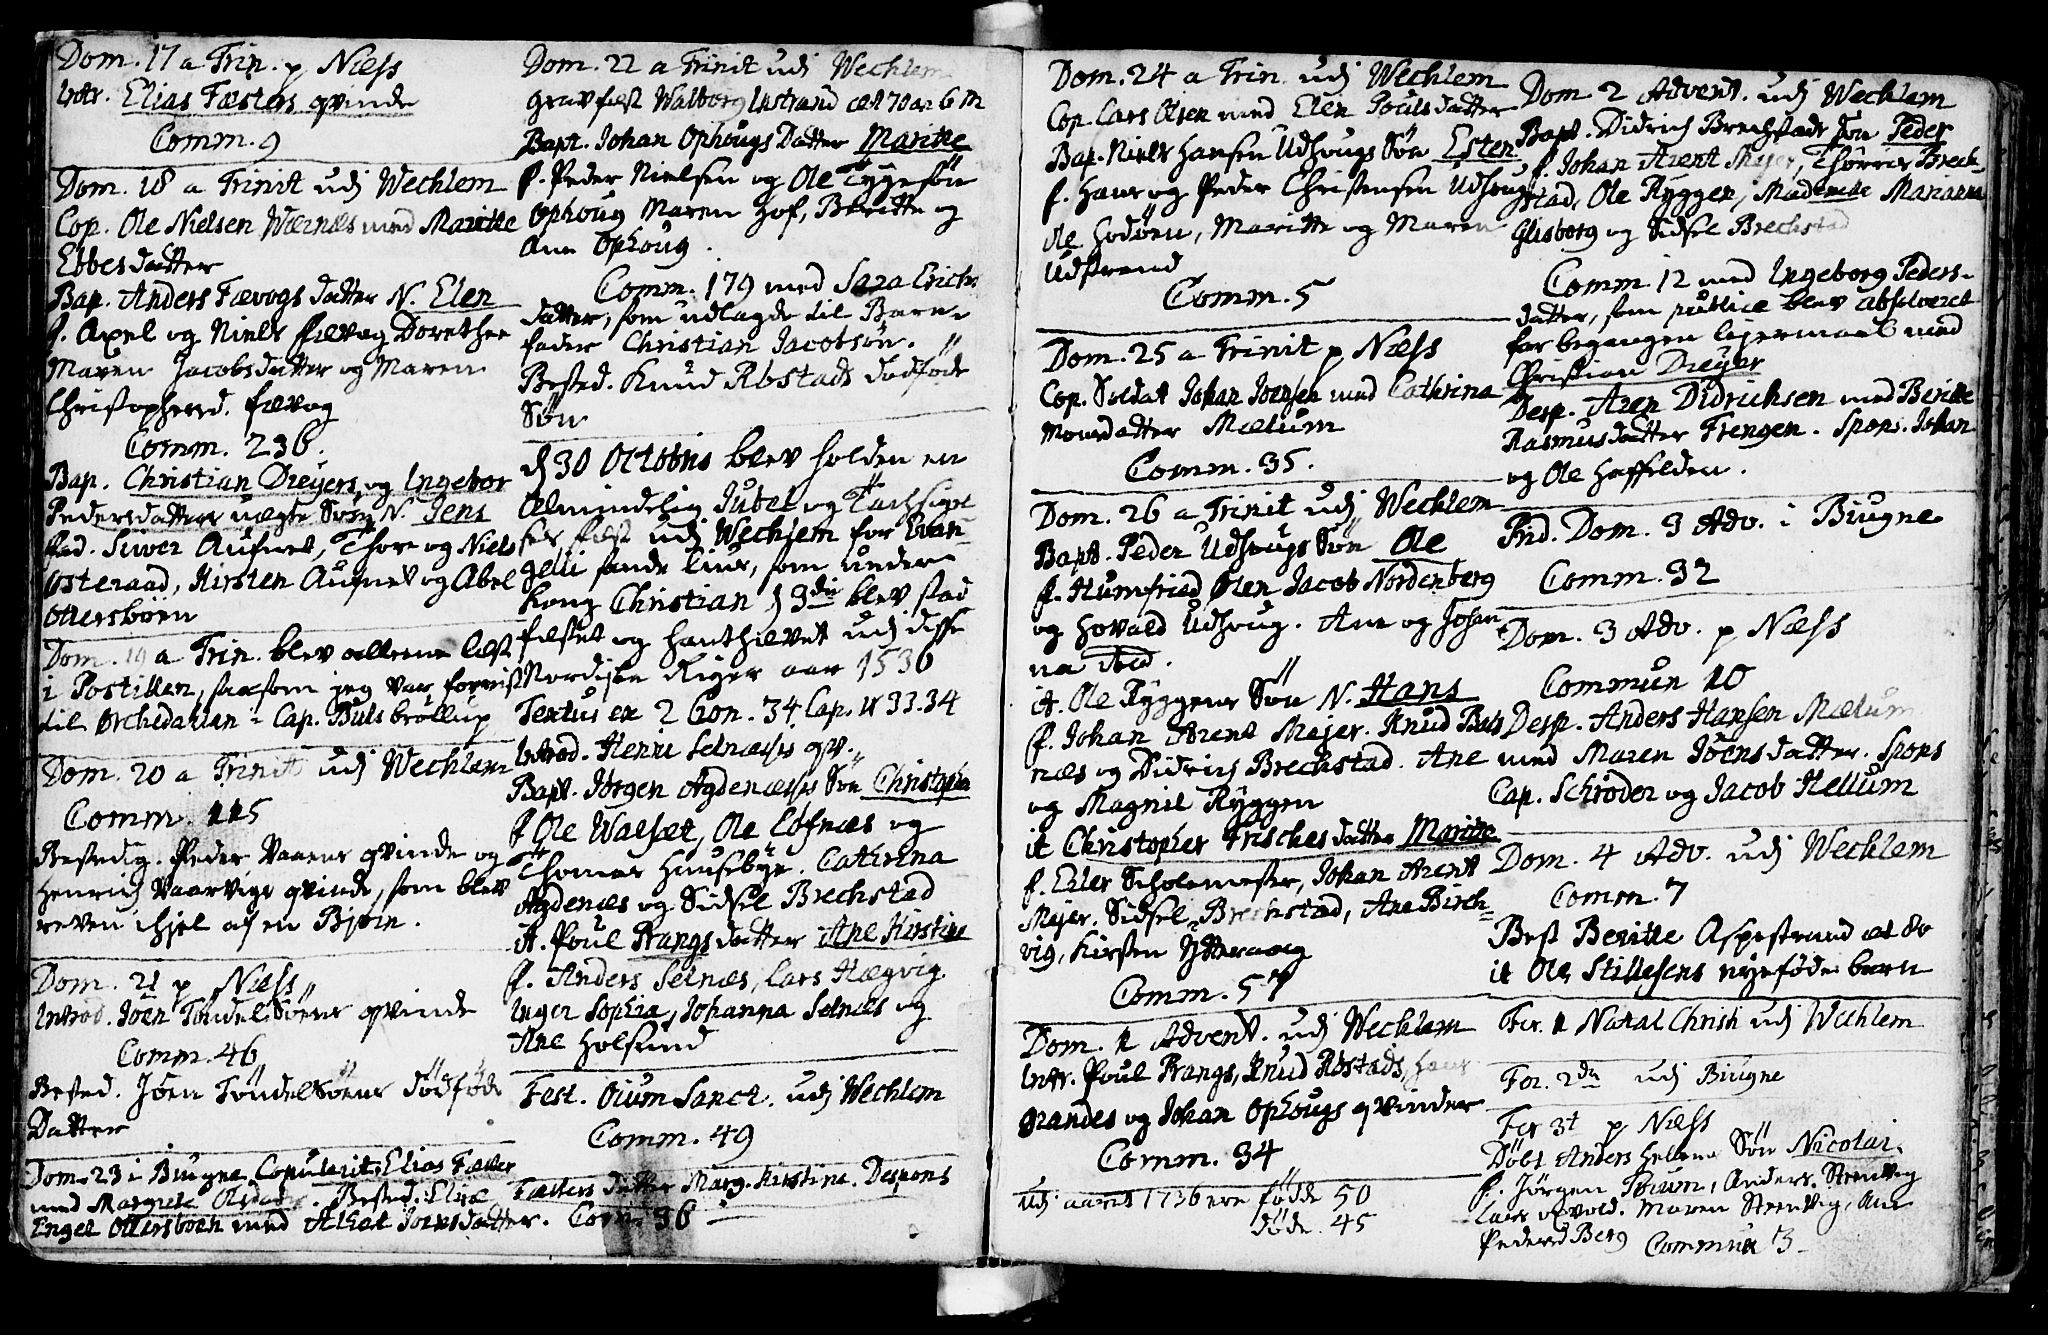 Dom. 17 a Trin. p Næss
Intr. Elias Fæsters qvinde
Comm. 9
Dom. 18 a Trinit udj Wechlem
Cop. Ole Nielsen Wærnæs med Maritte
Ebbesdatter
Bap. Anders Fævogs datter N. Elen
f. Axel og Niels Fævog Dorethee
Maren Jacobsdatter og Maren
Christophersd. Fævog
Comm. 236.
Bap. Christian Dreyers og Ingebor
Pedersdatters uægte Søn N. Jens
fad. Siwer Aufnes, Thore og Niels
Østeraad, Kirsten Aufnes og Abel
Ottersboen
Dom. 19 a Trin. blev alleene læst
i Postillen, saasom jeg var forreist
til Orchedahlen i Cap. Buls brøllup
Dom. 20 a Trinit udj Wechlem
Comm. 115
Bested. Peder Vaaens qvinde og
Henrich Vaarvigs qvinde, som blev
reven ihjel af en Bjørn.
Dom. 21 p Næss
Introd. Joen TøndelSøens qvinde
Comm. 46
Bested. Jøen TøndelSøens dødføde
Datter
Dom. 23 i Biugne Copulerit Elias Fæster
med Margrete . Bested.
Engel Ottersboen med Joensdatter.
Dom. 22 a Trinit udj Wechlem
gravfæst Walborg Ustrand æt 70 aar 6 M
Bapt. Johan Ophougs Datter Maritte
f. Peder Nielsen og Ole Tygesøn
Ophoug Maren Hof, Beritte og
Ane Ophoug.
Comm. 179 med Sara Erichs
datter, som udlagde til Barne
fader Christian Jacobsøn.
Bested. Knud Rbstads dødføde
Søn
d 30 Octobris blev holden en
Almindelig Jubel og Tachsigel
ses fæst udj Wechlem for Evan-
gelii sande lius, som under
Kong Christian d 3die blev stad
fæstet og hanthævet udj disse
Nordiske Riger aar 1536
Textus ex 2 Cron. 34. Cap. v 33.34
Introd. Henric Selnæsses qv.
Bapt. Jørgen Agdenæsses Søn Christopher
f Ole Walsæt, Ole Løfnæs og
Thomas Huusebye. Cathrina
Agdenæs og Sidsel Brechstad
it. Poul Prangs datter Ane Kirstine
f. Anders Selnæs, Lars Hægvig
Inger Sophia, Johanna Selnæs og
Ane Holsund
Fest. Oium Sanct. udj Wechlem
Comm. 49
Fæsters datter Marg. Kirstine. Despons
Com. 36
Dom. 24 a Trin. udj Wechlem
Cop. Lars Olsen med Elen Poulsdatter
Bap. Niels Hansen Udhougs Søn Esten
f. Hans og Peder Christensen Udhoug
Ole Hodøen, Maritte og Maren
Udstrand
Comm. 5
Dom. 25 a Trinit p Næss
Cop. Soldat Johan Joensen med Cathrina
Monsdatter Mælum
Comm. 35.
Dom. 26 a Trinit udj Wechlem
Bapt. Peder Udhougs Søn Ole
f. Humfried Øien Jacob Nordenberg
og Hovald Udhoug. Ane og Johan
na ibid.
it. Ole Ryggens Søn N. Hans
f. Johan Arent Mejer. Knud
næs og Didrich Brechstad. Ane
og Magnil Ryggen
it Christopher Frisches datter Maritte
f. Eiler Scholemester, Johan Arent
Mejer. Sidsel Brechstad, Ane Birch-
vig, Kirsten Ytteraag
Comm. 57
Dom. 1 Advent. udj Wechlem
Intr. Poul Prangs, Knud Rbstads, Hans
Grandes og Johan Ophougs qvinder
Comm. 34
Udj aaret 1736 ere fødde 50
døde 45
Dom 2 Advent. udj Wechlem
Bapt. Didrich Brechstads Søn Peder
f. Johan Arent Mejer, Thørris Brech-
stad, Ole Ryggen, Mademlle Marianna
Gliisborg og Sidsel Brechstad
Comm. 12 med Ingeborg Peders-
datter, som publice blev absolveret
for begangen lejermaal med
Christian Dreyer
Desp. Aren Didrichsen med Beritte
Rasmusdatter Frengen. Spons. Johan
og Ole Hoffælden.
Prid. Dom. 3 Adv. i Biugne
Comm. 32
Dom. 3 Adv. p Næss
Commun 10
Desp. Anders Hansen Mælum
med Maren Jøensdatter. Spons
Cap. Schrøder og Jacob Hellum
Dom. 4 Adv. udj Wechlem
Comm. 7
Best Beritte Aspestrand æt 80
it Ole Stillesens nyefødde barn
Fer. 1 Natal Christi udj Wechlem
Fer. 2da udj Biugne
Fer 3t p Næss
Døbt Anders Hellems Søn Nicolai.
f. Jørgen , Anders Steenvig
Lars . Maren Steenvig, Ane
Pedersd Berg Commun 3